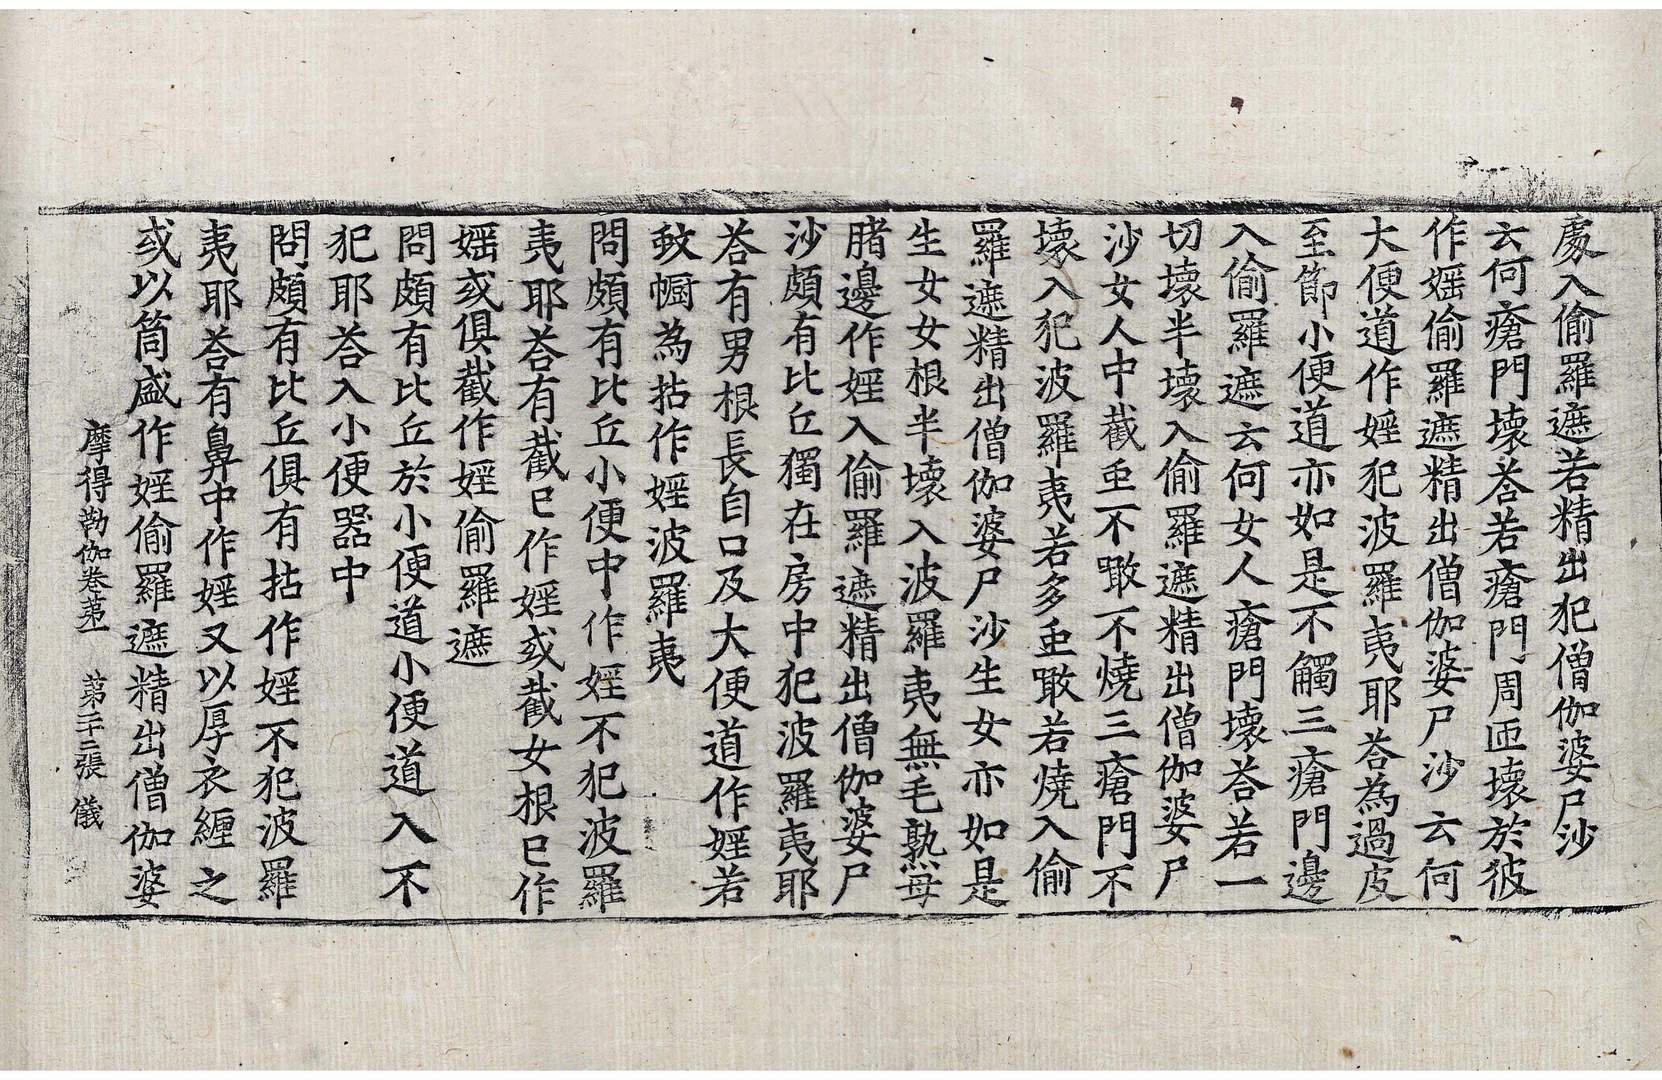 處入偷羅遮若精出犯僧伽婆尸沙
云何瘡門壞荅若瘡門周匝壞於彼
作婬偷羅遮精出僧伽婆尸沙云何
大便道作婬犯波羅夷耶荅為過皮
至節小便道亦如是不觸三瘡門邊
入偷羅遮云何女人瘡門壞荅若一
切壞半壞入偷羅遮精出僧伽婆尸
沙女人中截虫不噉不燒三瘡門不
壞入犯波羅夷若多虫噉若燒入偷
羅遮精出僧伽婆尸沙生女亦如是
生女女根半壞入波羅夷無毛熟母
腊邊作婬入偷羅遮精出僧伽婆尸
沙頗有比丘獨在房中犯波羅夷耶
荅有男根長自口及大便道作婬若
蚊㡡為拈作婬波羅夷
問頗有比丘小便中作婬不犯波羅
夷耶荅有截已作婬或截女根已作
婬或俱截作婬偷羅遮
問頗有比丘於小便道小便道入不
犯耶荅入小便器中
問頗有比丘俱有拈作婬不犯波羅
夷耶荅有鼻中作婬又以厚衣纏之
或以筒盛作婬偷羅遮精出僧伽婆
摩得勒伽卷第一 第二十二張 儀